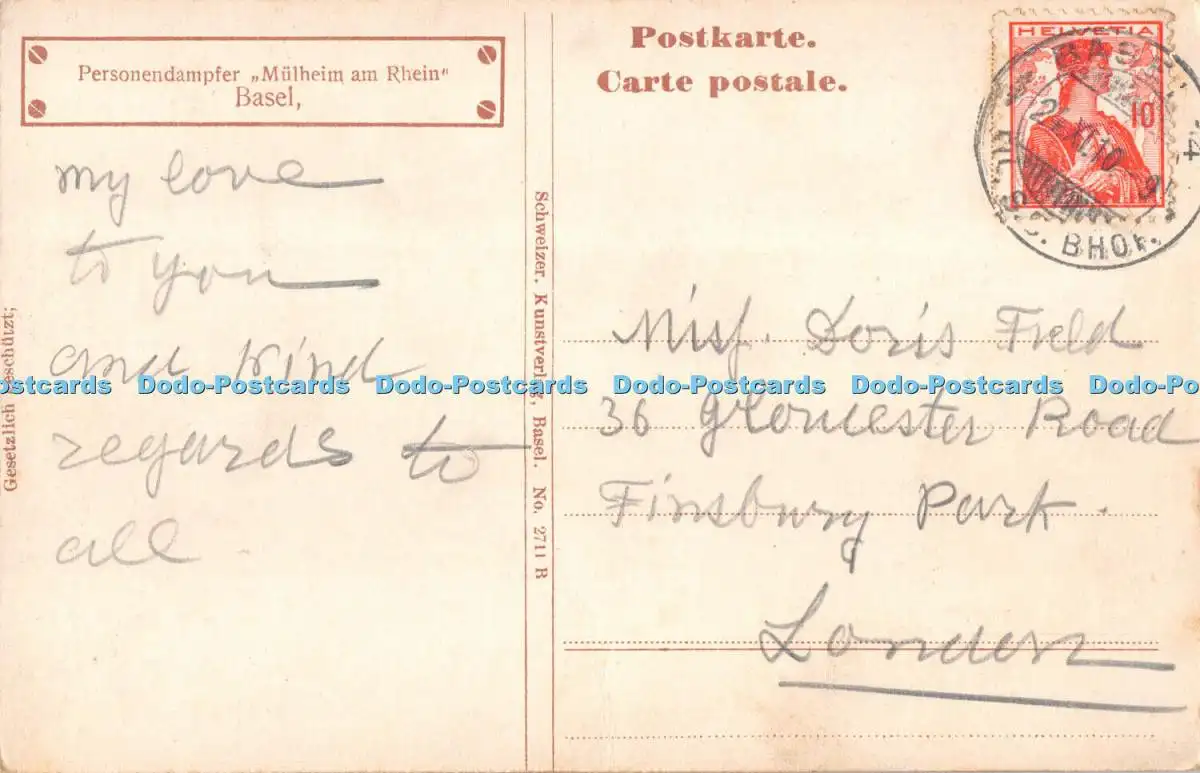 Personendampfer „Mülheim am Rhein"
Basel,
my love
to you
and kind
regards to
all.
Gesetzlich geschützt;
Schweizer. Kunstverlag, Basel. No. 2711 R
Postkarte.
Carte postale.
HELVETIA
10
BHOF.
Miss. Doris Field
36 Gloucester Road
Finsbury Park.
London
Postcards Dodo-Postcards Dodo-Postcards Dodo-Postcards Dodo-Postcards Dodo-Post